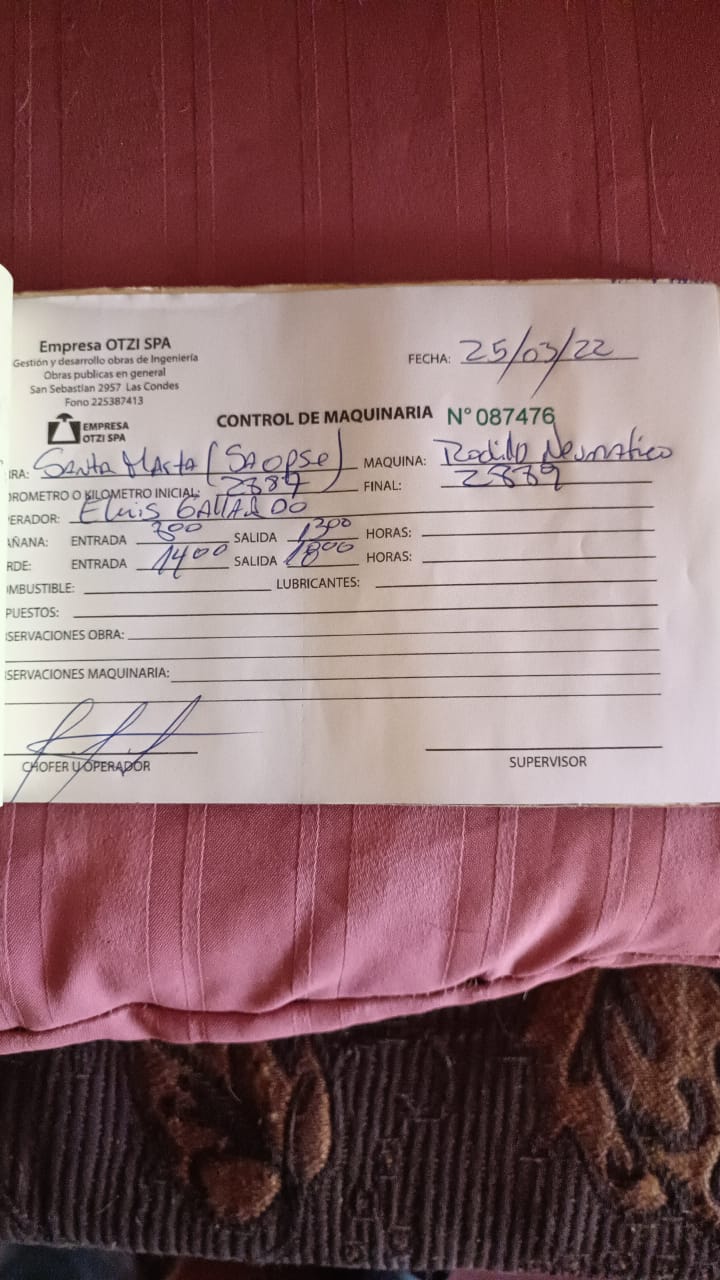 Empresa OTZI SPA
Gestión y desarrollo obras de Ingeniería
Obras publicas en general
San Sebastian 2957 Las Condes
Fono 225387413
FECHA: 25/03/22
EMPRESA
OTZI SPA
CONTROL DE MAQUINARIA N° 087476
RA: Santa Marta ( MAQUINA: Rodillo Neumatico
OROMETRO O KILOMETRO INICIAL: 2889 FINAL: 2889
ERADOR: Elvis GALLARDO
AÑANA: ENTRADA 800 SALIDA 1300 HORAS:
RDE: ENTRADA 1400 SALIDA 1800 HORAS:
OMBUSTIBLE: LUBRICANTES:
PUESTOS:
SERVACIONES OBRA:
SERVACIONES MAQUINARIA:
CHOFER U OPERADOR
SUPERVISOR